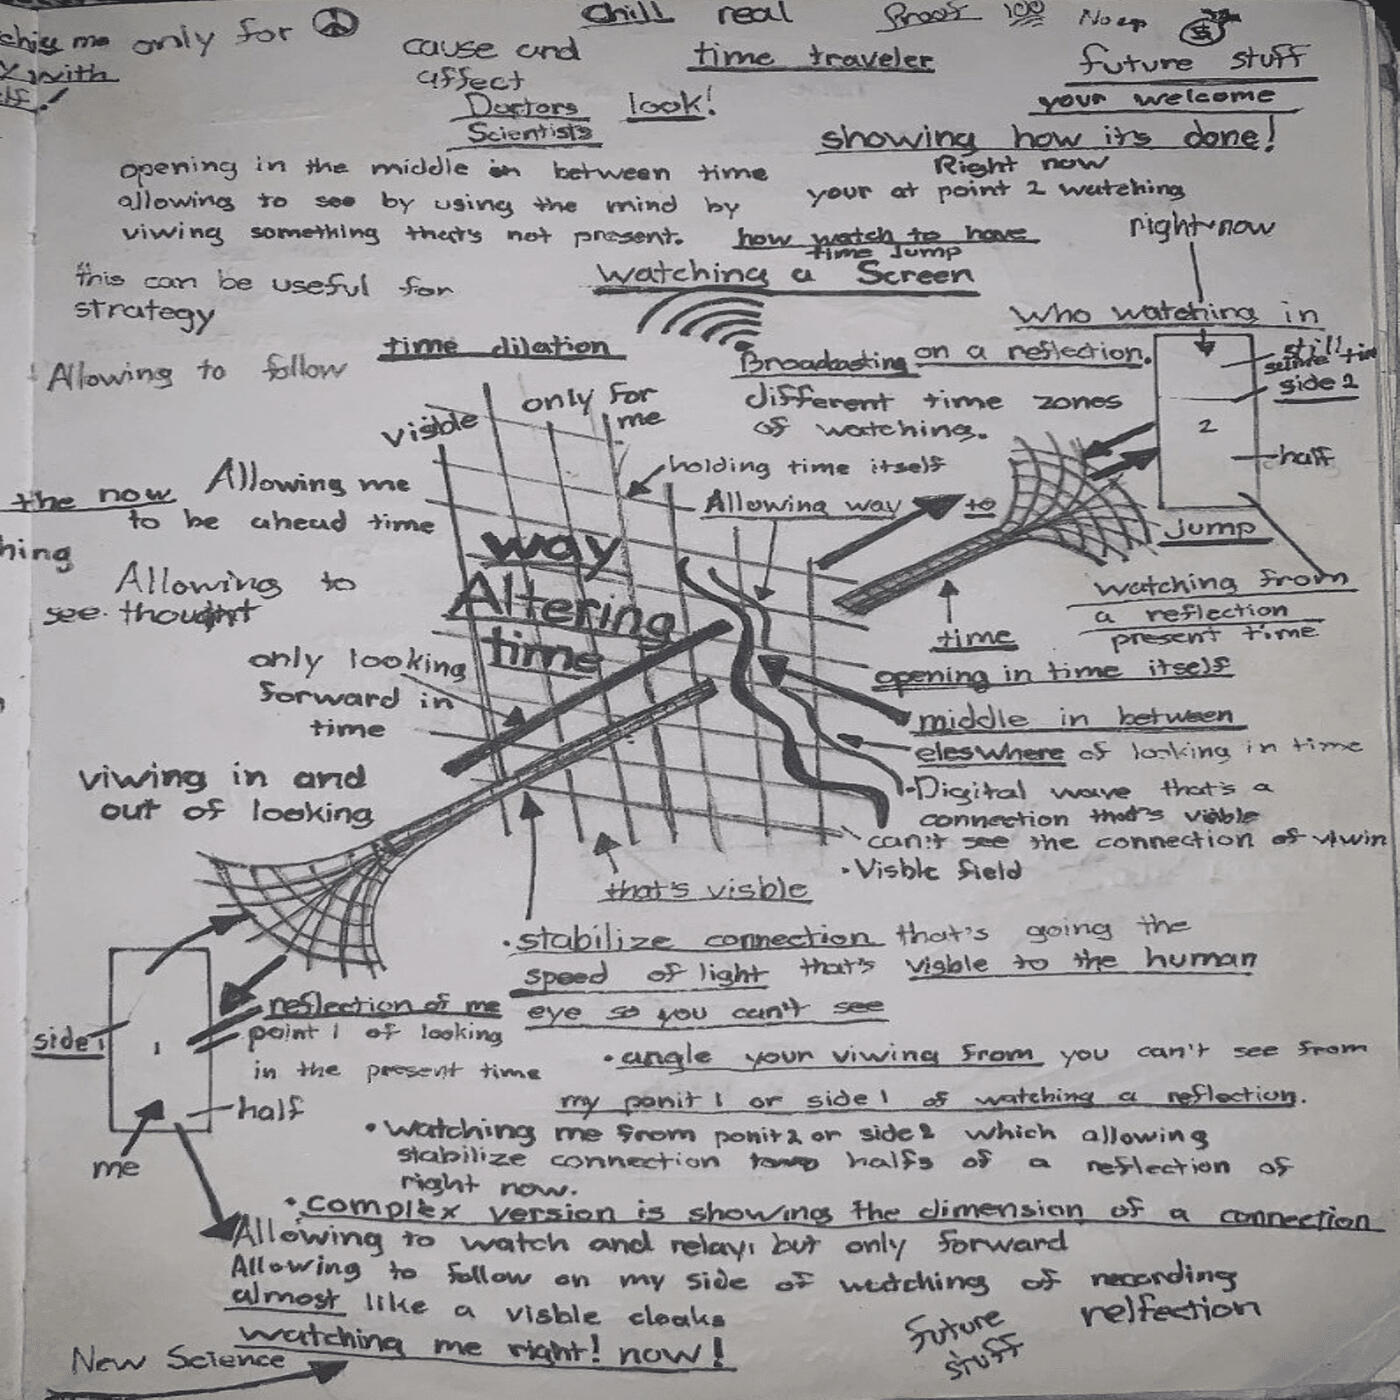 me only for
with
chill real
Proof 100
No cap
cause and
affect
time traveler
future stuff
your welcome
Doctors look!
Scientists
showing how its done!
Right now
your at point 2 watching
opening in the middle in between time
allowing to see by using the mind by
viwing something that's not present.
how watch to have
time Jump
right now
watching a Screen
this can be useful for
strategy
who watching in
time dilation
Broadcasting on a reflection.
still
side 2
Allowing to follow
visble
only for
me
different time zones
of watching.
2
half
holding time itself
the now
Allowing me
to be ahead time
Allowing way to
Jump
hing
way
Altering
time
Allowing to
see thought
watching from
a reflection
present time
time
only looking
forward in
time
opening in time itself
middle in between
eleswhere of looking in time
viwing in and
out of looking
•Digital wave that's a
connection that's visble
can't see the connection of viwin
• Visble field
that's visble
• stabilize connection that's going the
speed of light that's visble to the human
eye so you can't see
side 1
1
reflection of me
point 1 of looking
in the present time
half
me
• angle your viwing from you can't see from
my ponit 1 or side 1 of watching a reflection.
• watching me from ponit 2 or side 2 which allowing
stabilize connection halfs of a reflection of
right now.
• complex version is showing the dimension of a connection
Allowing to watch and relay, but only forward
Allowing to follow on my side of watching of recording
almost like a visble cloaks
relfection
future
stuff
watching me right! now!
New Science